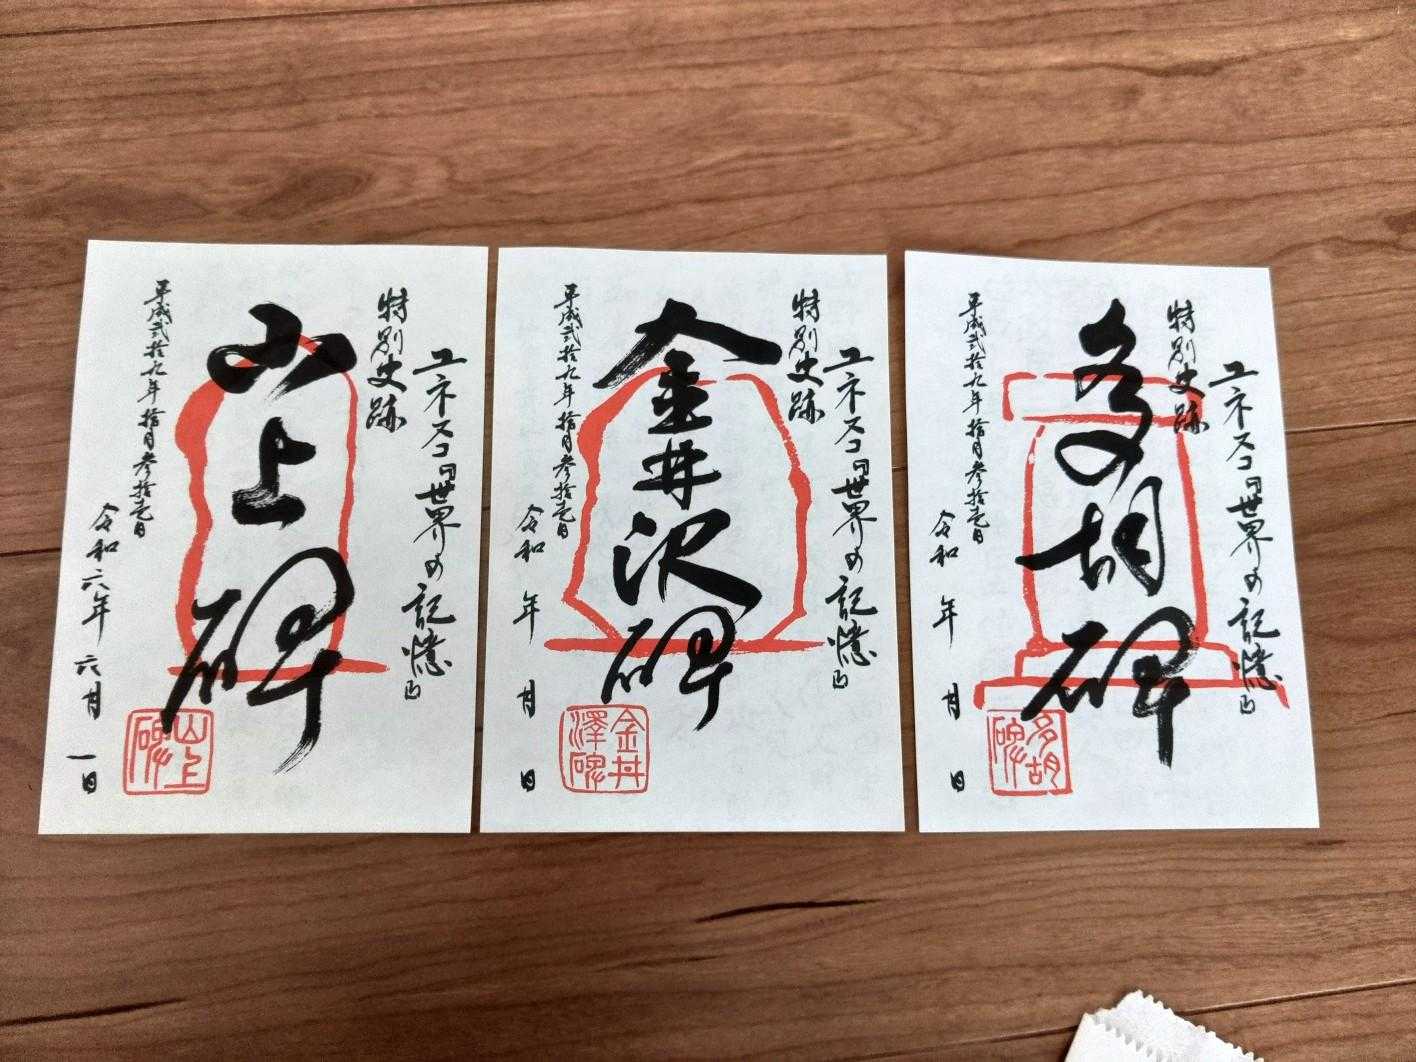 特別史跡
ユネスコ「世界の記憶」
山上碑
平成弐拾九年拾月参拾壱日
令和六年六月一日
山上碑
特別史跡
ユネスコ「世界の記憶」
金井沢碑
平成弐拾九年拾月参拾壱日
令和 年 月 日
金井澤碑
特別史跡
ユネスコ「世界の記憶」
多胡碑
平成弐拾九年拾月参拾壱日
令和 年 月 日
多胡碑